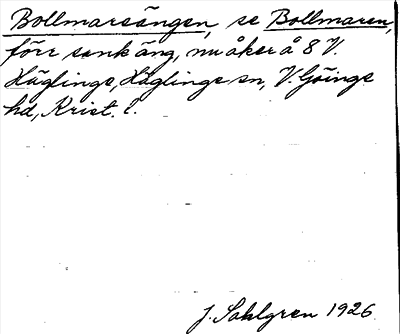 Bollmarsängen, se Bollmaren,
förr sank äng, nu åker å 8 V.
Häglinge, Häglinge sn, V. Göinge
hd, Krist. l.
J. Sahlgren 1926